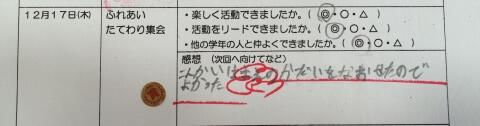 12月17日(木)
ふれあい
たてわり集会
・楽しく活動できましたか。(◎・○・△)
・活動をリードできましたか。(◎・○・△)
・他の学年の人と仲よくできましたか。(◎・○・△)
感想 (次回へ向けてなど)
こんかいはまえのかだいをなおせたので
よかった